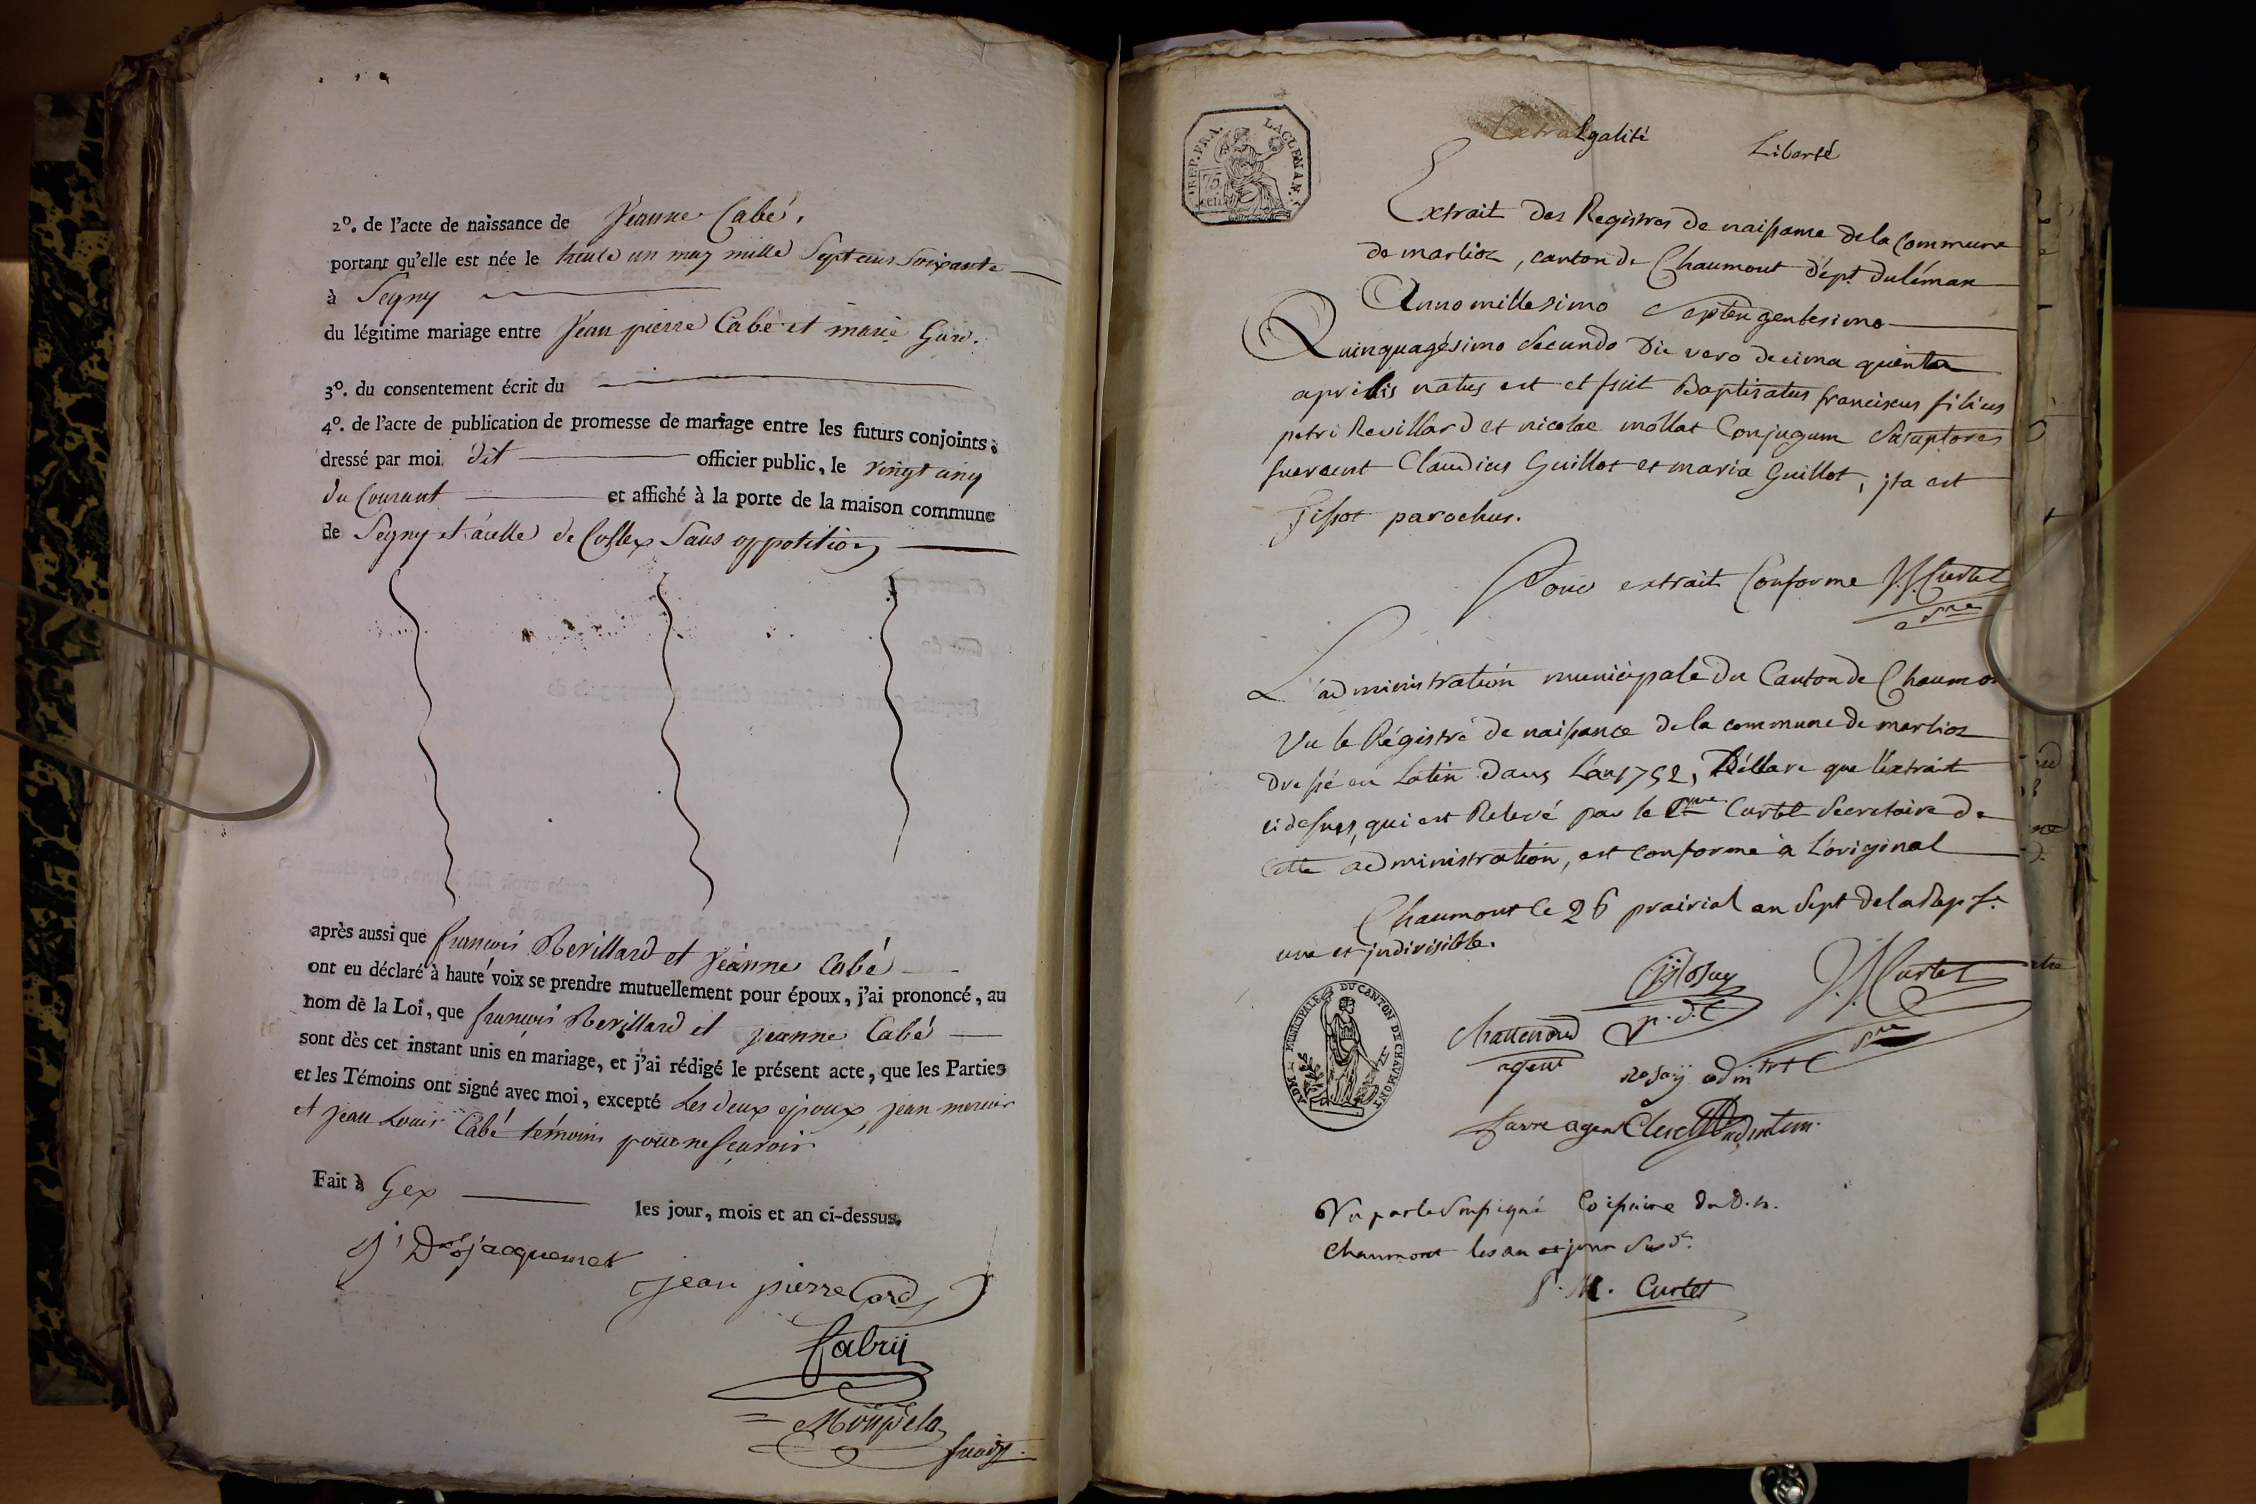 2º. de l'acte de naissance de Jeanne Cabé.
portant qu'elle est née le trente un may mille Septcens Soixante
à Segny
du légitime mariage entre Jean pierre Cabé et marie
3º. du consentement écrit du
4º. de l'acte de publication de promesse de mariage entre les futurs conjoints;
dressé par moi dit officier public, le vingt cinq
du Courant et affiché à la porte de la maison commune
de Segny et à celle de Collex Sans oppotition
après aussi que françois Revillard et Jeanne Cabé
ont eu déclaré à haute voix se prendre mutuellement pour époux, j'ai prononcé, au
nom de la Loi, que françois Revillard et Jeanne Cabé
sont dès cet instant unis en mariage, et j'ai rédigé le présent acte, que les Parties
et les Témoins ont signé avec moi, excepté Les deux epoux, jean mercier
et jean Louis Cabé témoins pour ne sçavoir
Fait à Gex les jour, mois et an ci-dessus.
jacquemet
jean pierre
fabry
REP. FRA.
75
cen.
Egalité Liberté
Extrait des Registres de naissance de la Commune
de marlioz, canton de Chaumont dépt. du léman
Anno millesimo Septengentesimo
Quinquagésimo Secundo Die vero decima quinta
aprilis natus est et fuit Baptisatus franciscus filius
petri Revillard et nicolae mollat Conjugum Susceptores
fuerunt Claudius Guillot et maria Guillot, jta est
parochus.
Pour extrait Conforme J. J. Curtet
sre
L'administration municipale du Canton de Chaumon
Vu le Régistre de naissance de la commune de marlioz
dressé en Latin dans L'an 1752, Déclare que l'extrait
ci dessus, qui est Relevé par le Cen Curtet Secretaire de
cette administration, est conforme à L'original
Chaumont le 26 prairial an Sept de la Rep. fe.
une et jndivisible.
J. J. Curtet
sre
p. d. t
agent
ADM. MUNICIPALE DU CANTON DE CHAUMONT
favre agent
Vu par le Soussigné Coissaire du D. E.
Chaumont les an et jour Susd.
P. M. Curtet